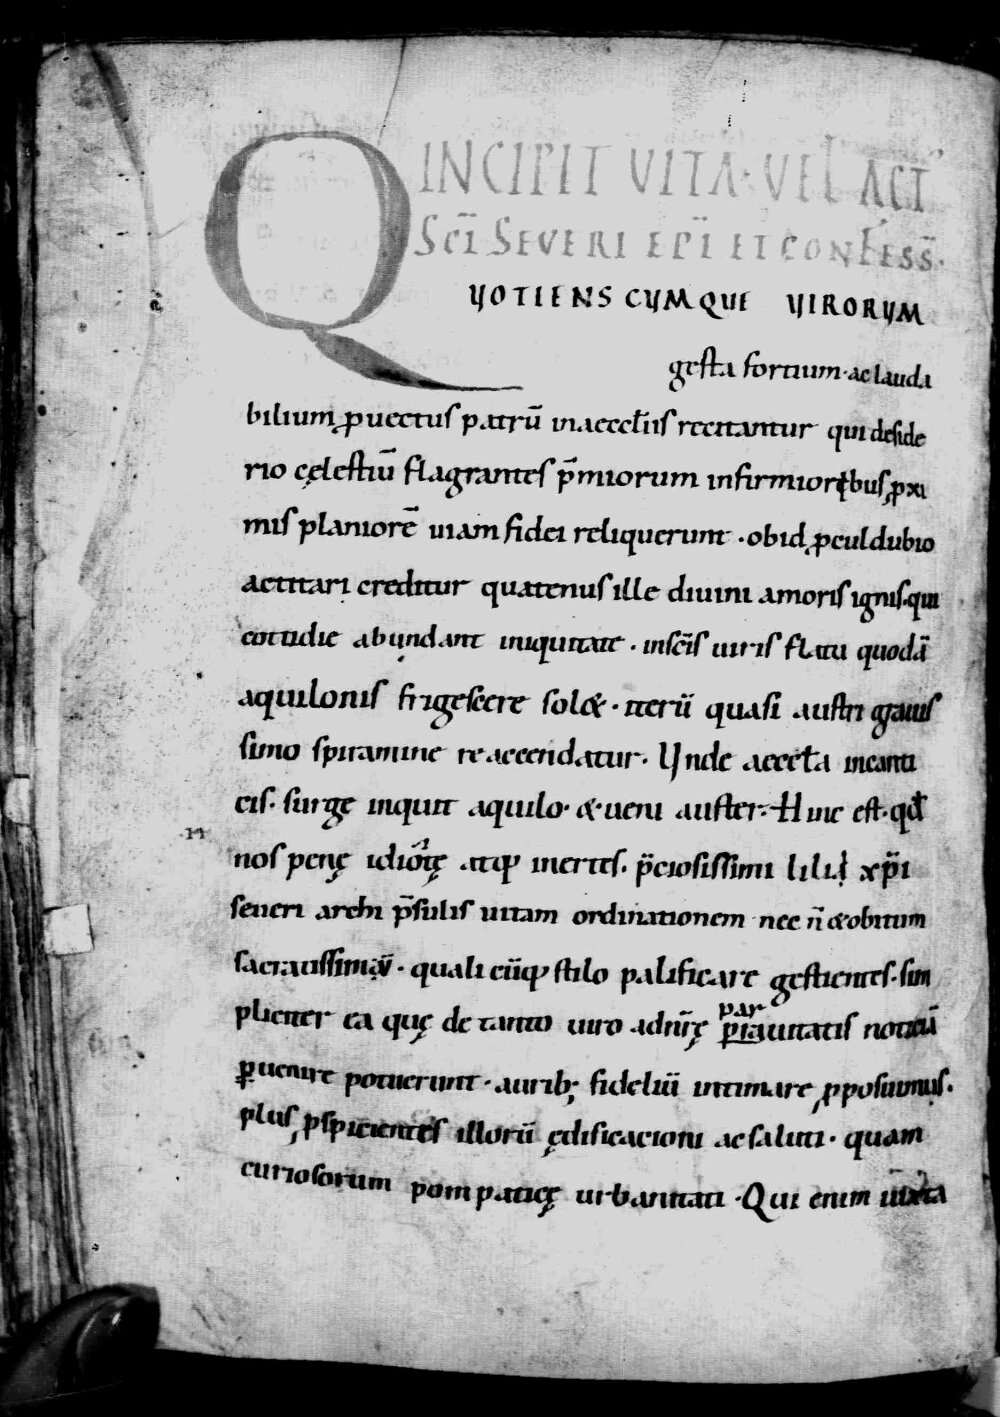 INCIPIT VITA· VEL ACT̄
SCĪ SEVERI EPĪ ET CONFESS̄·
QUOTIENS CUMQUE VIRORUM
gesta fortium· ac lauda
bilium ꝓuectus patrū in aeccłiis recitantur qui deside
rio cęlestiū flagrantes p̄miorum infirmioribus ꝓxi
mis planiorē uiam fidei reliquerunt · ob id ꝓculdubio
actitari creditur quatenus ille diuini amoris ignis· qui
cottidie abundante iniquitate · in scīs uiris flatu quodā
aquilonis frigescere sol& · iterū quasi austri grauis
simo spiramine reaccendatur· Unde aeccła in canti
cis· surge inquit aquilo· & ueni auster· Hinc est· qd̄
nos penę idiotę atq; inertes· p̄ciosissimi lilii xp̄i
seueri archi p̄sulis uitam ordinationem nec n̄ & obitum
sacratissimū · quali cūq; stilo palificare gestientes· sim
pliciter ea quę de tanto uiro ad nr̄ę par
uitatis noticiā
ꝑuenire potuerunt · aurib; fideliū intimare ꝓposuimus·
plus ꝓspicientes illorū ędificacioni ac saluti · quam
curiosorum pompaticę urbanitati · Qui enim iuxta